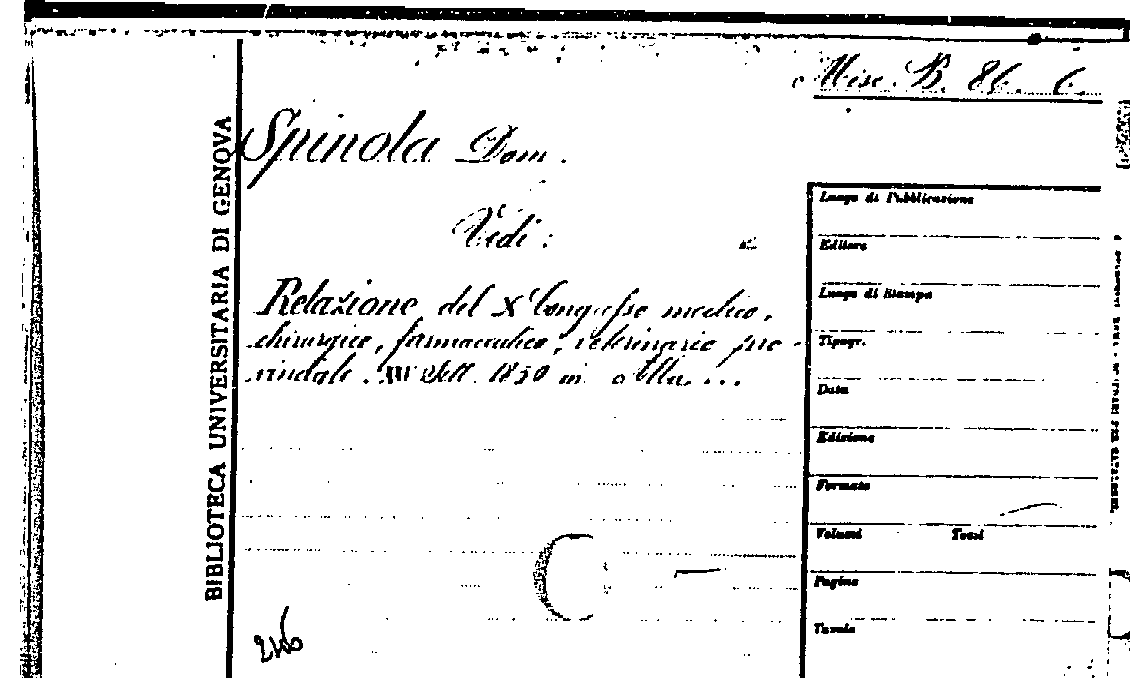 Misc. B. 86. 6.
BIBLIOTECA UNIVERSITARIA DI GENOVA
Spinola Dom.
Vedi:
Relazione del X Congresso medico,
chirurgico, farmaceutico, veterinario pro-
vinciale. Sett. 1850 in Alba...
Luogo di Pubblicazione
Editore
Luogo di Stampa
Tipogr.
Data
Edizione
Formato
Volumi Tomi
Pagine
Tavole